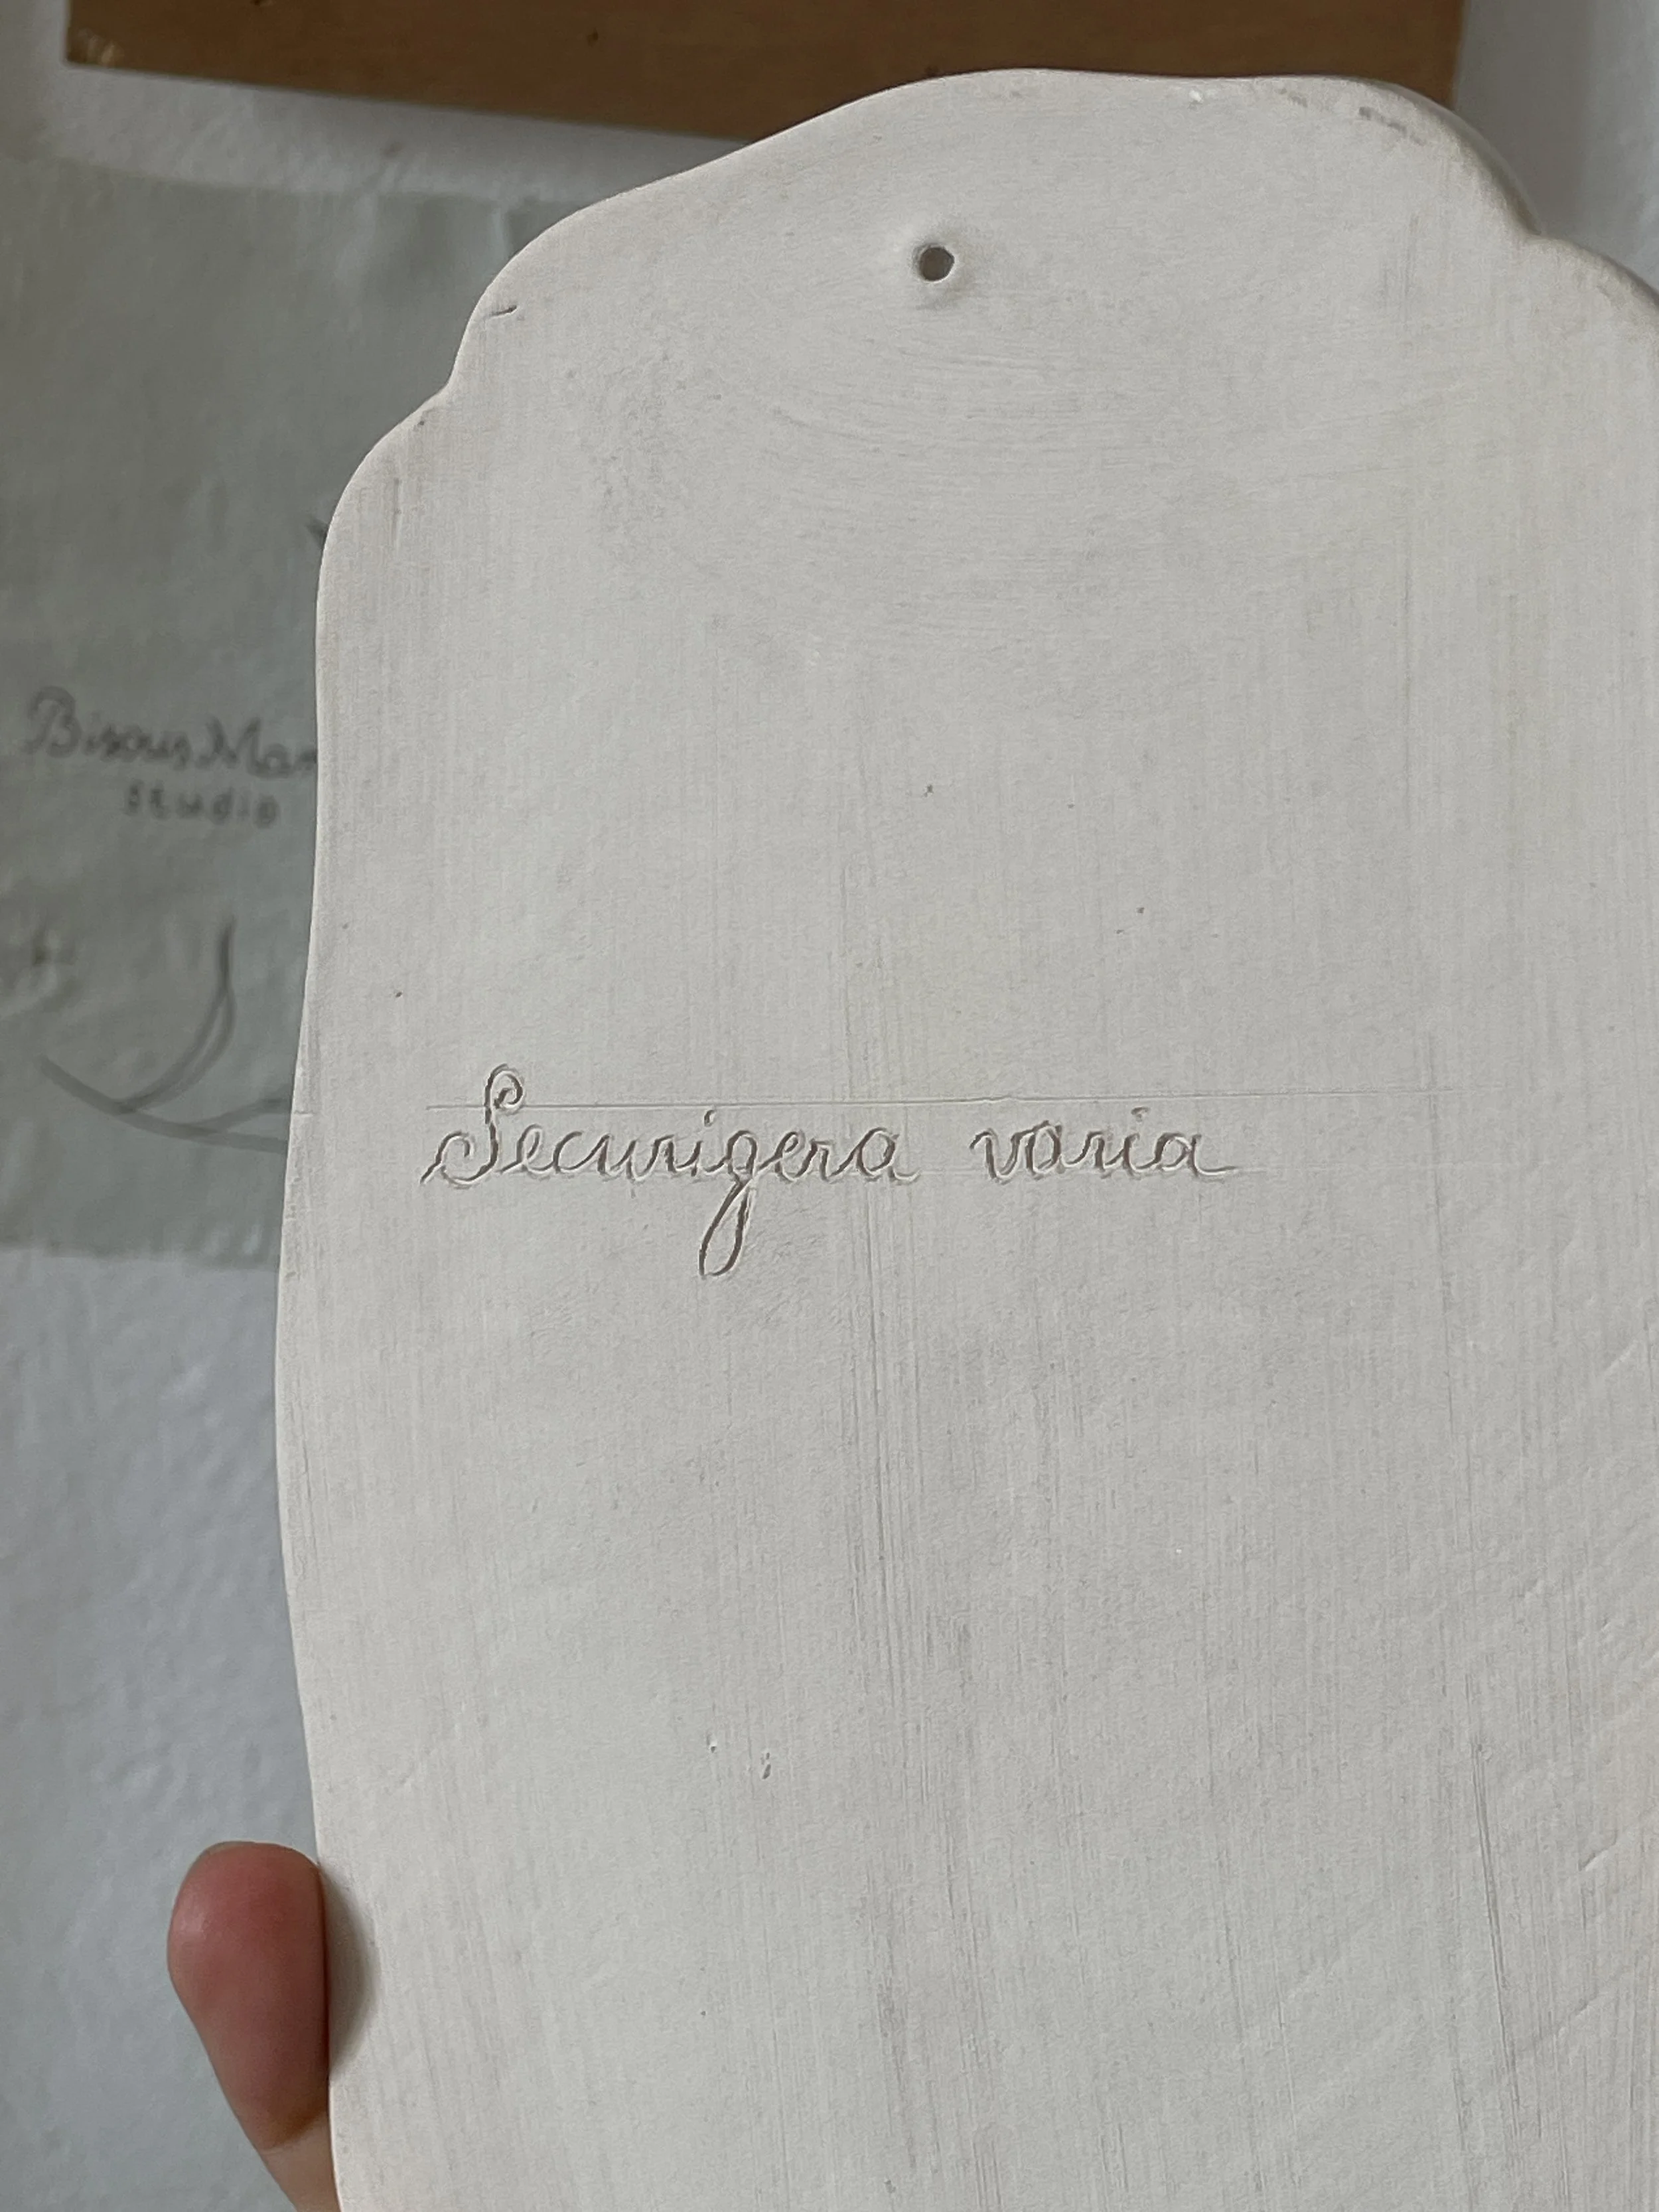 Bisous
studio
Securigera varia